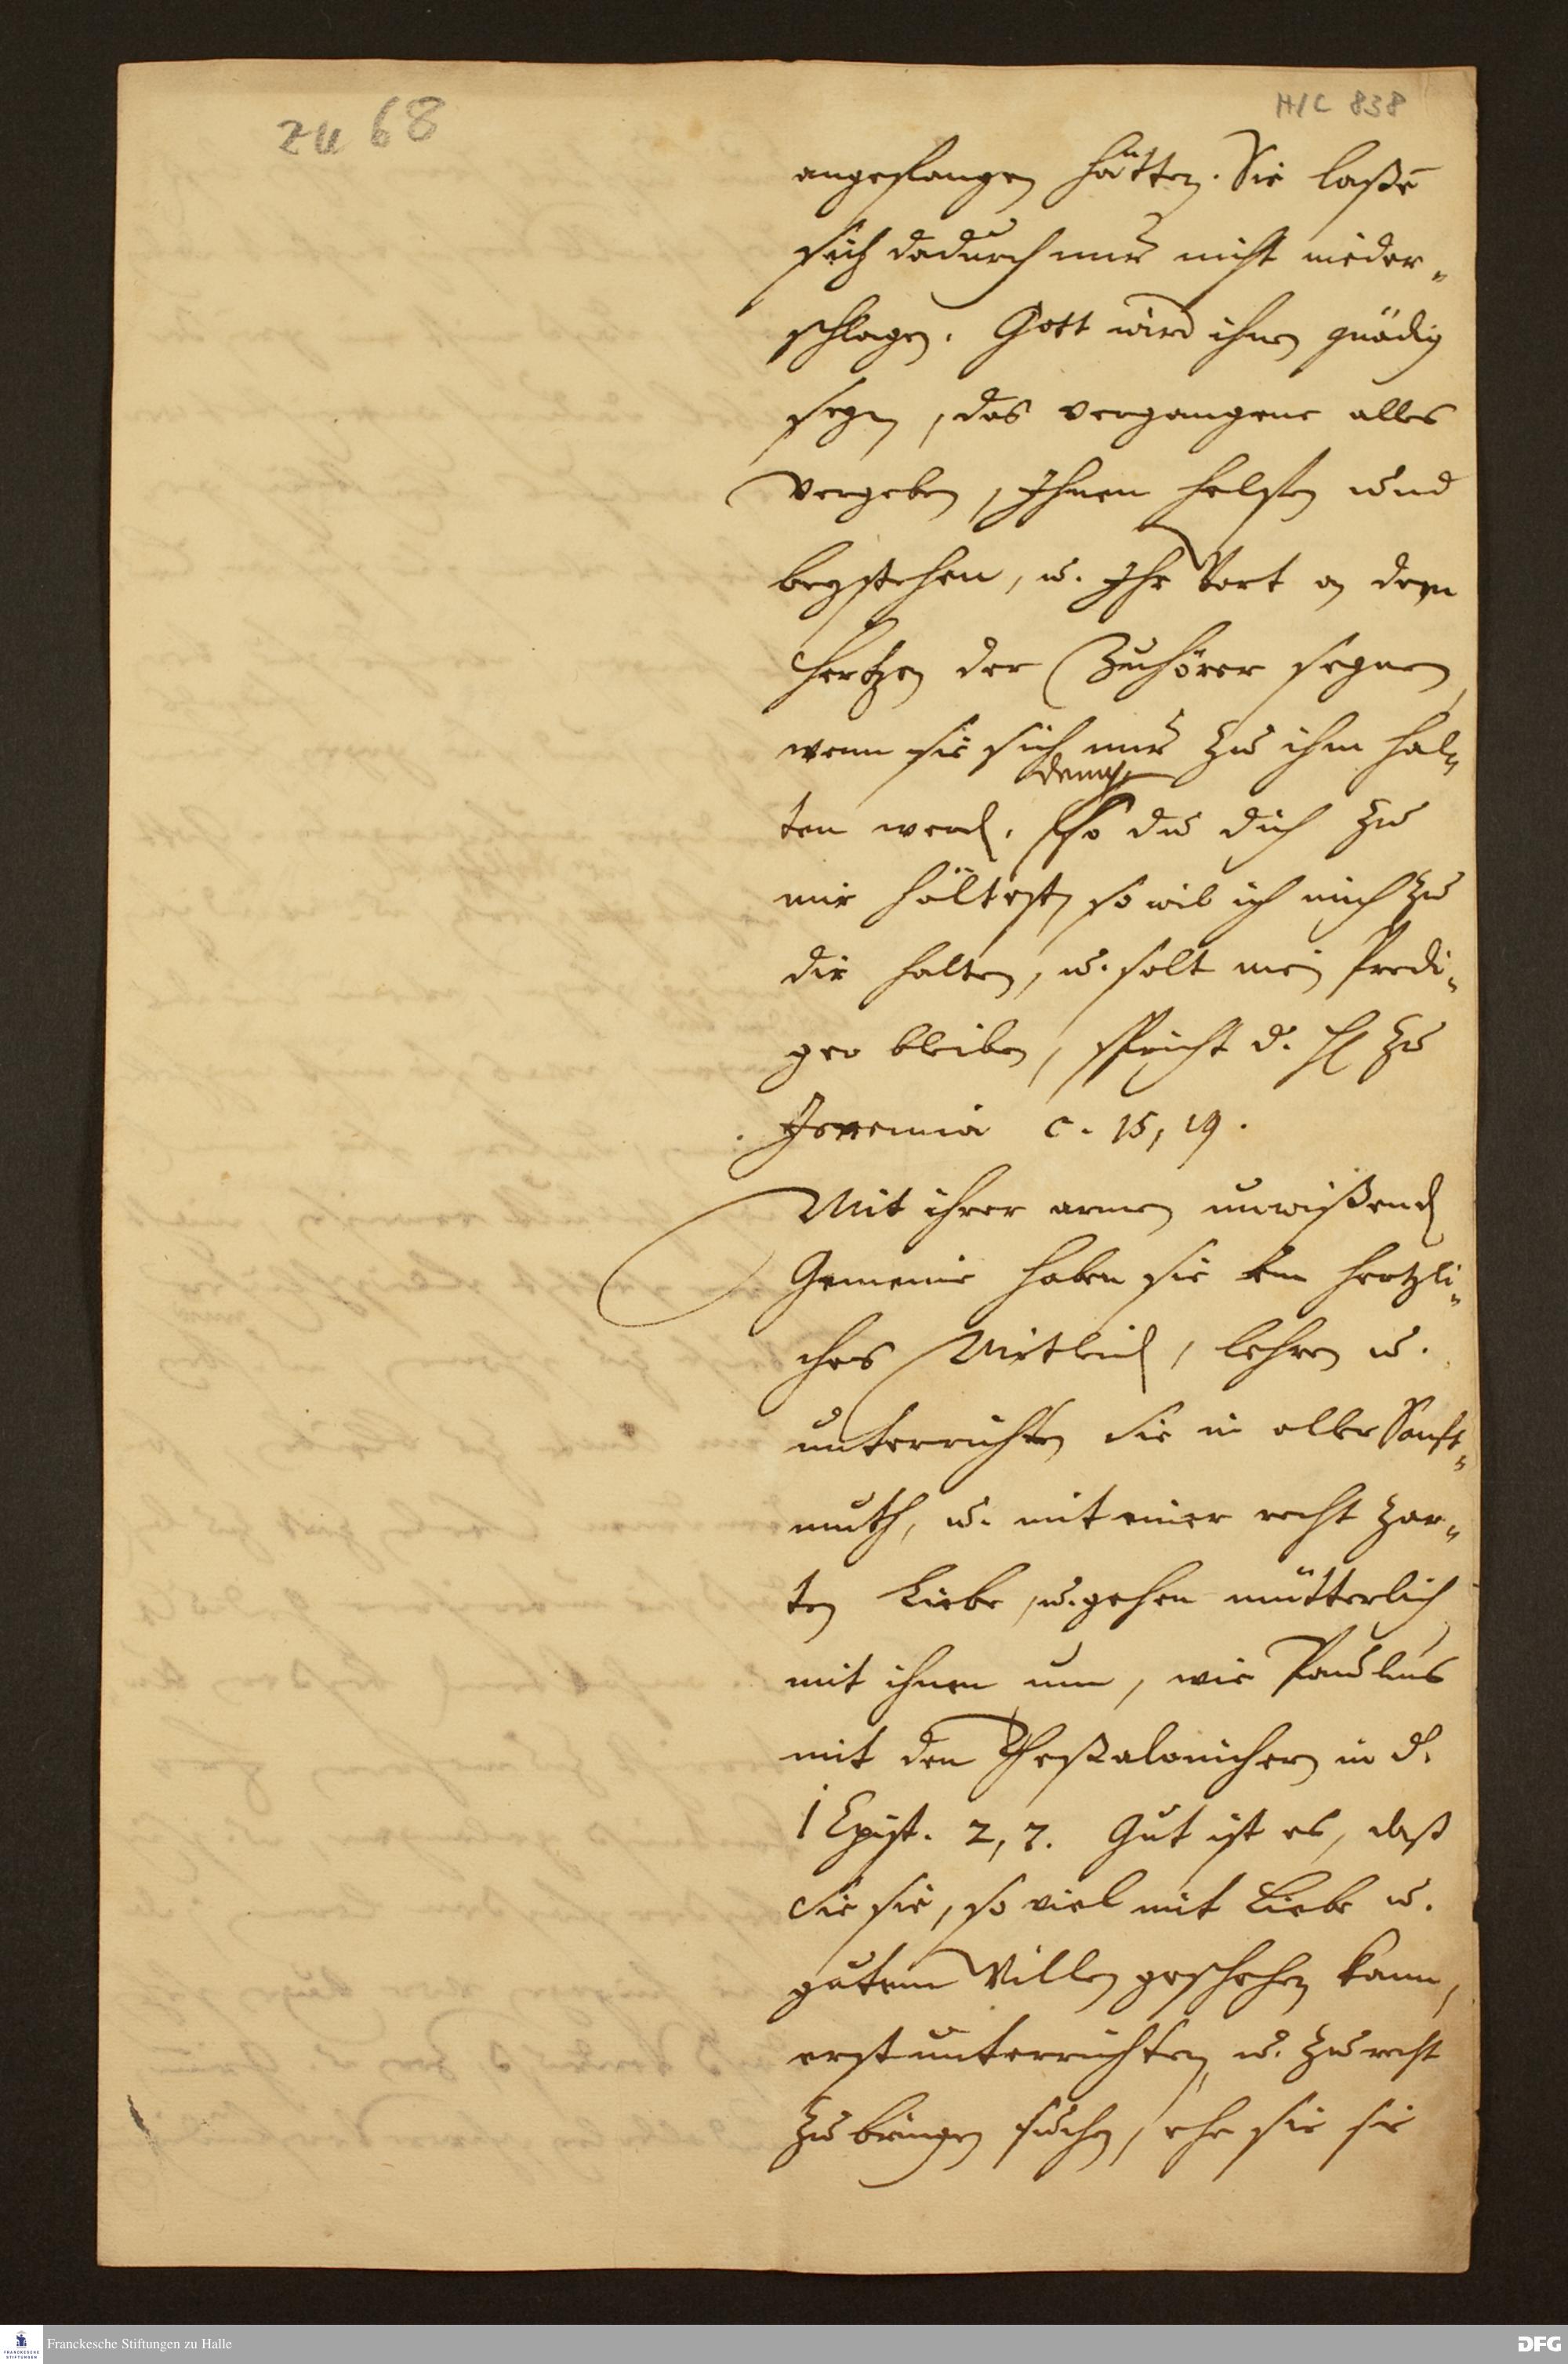 zu 68
H/C 838
angefangen hätten. Sie laßē
sich dadurch nur nicht nieder„
schlagen. Gott wird ihnen gnädig
seyn, das vergangene alles
vergeben, Ihnen helffen und
beystehen, u. Ihr Wort an dem
Hertzen der Zuhörer segnen,
wenn sie sich nur zu ihm hal„
ten werd. denn
So du dich zu
mir hältest, so wil ich mich zu
dir halten, u. solt mein Predi„
ger bleiben, spricht d. H zu
Jeremia c. 15, 19.
Mit ihrer armen unwißend
Gemeine haben sie ein hertzli„
ches Mitleid, lehren u.
unterrichten sie in aller Sanft„
muth, u. mit einer recht zar„
ten Liebe, u. gehen mütterlich
mit ihnen um, wie Paulus
mit den Theßalonichern in d.
1 Epist. 2, 7. Gut ist es, daß
sie sie, so viel mit Liebe u.
gutem Willen geschehen kann,
erst unterrichten, u. zurecht
zu bringen suchen, ehe sie sie
Franckesche Stiftungen zu Halle
DFG